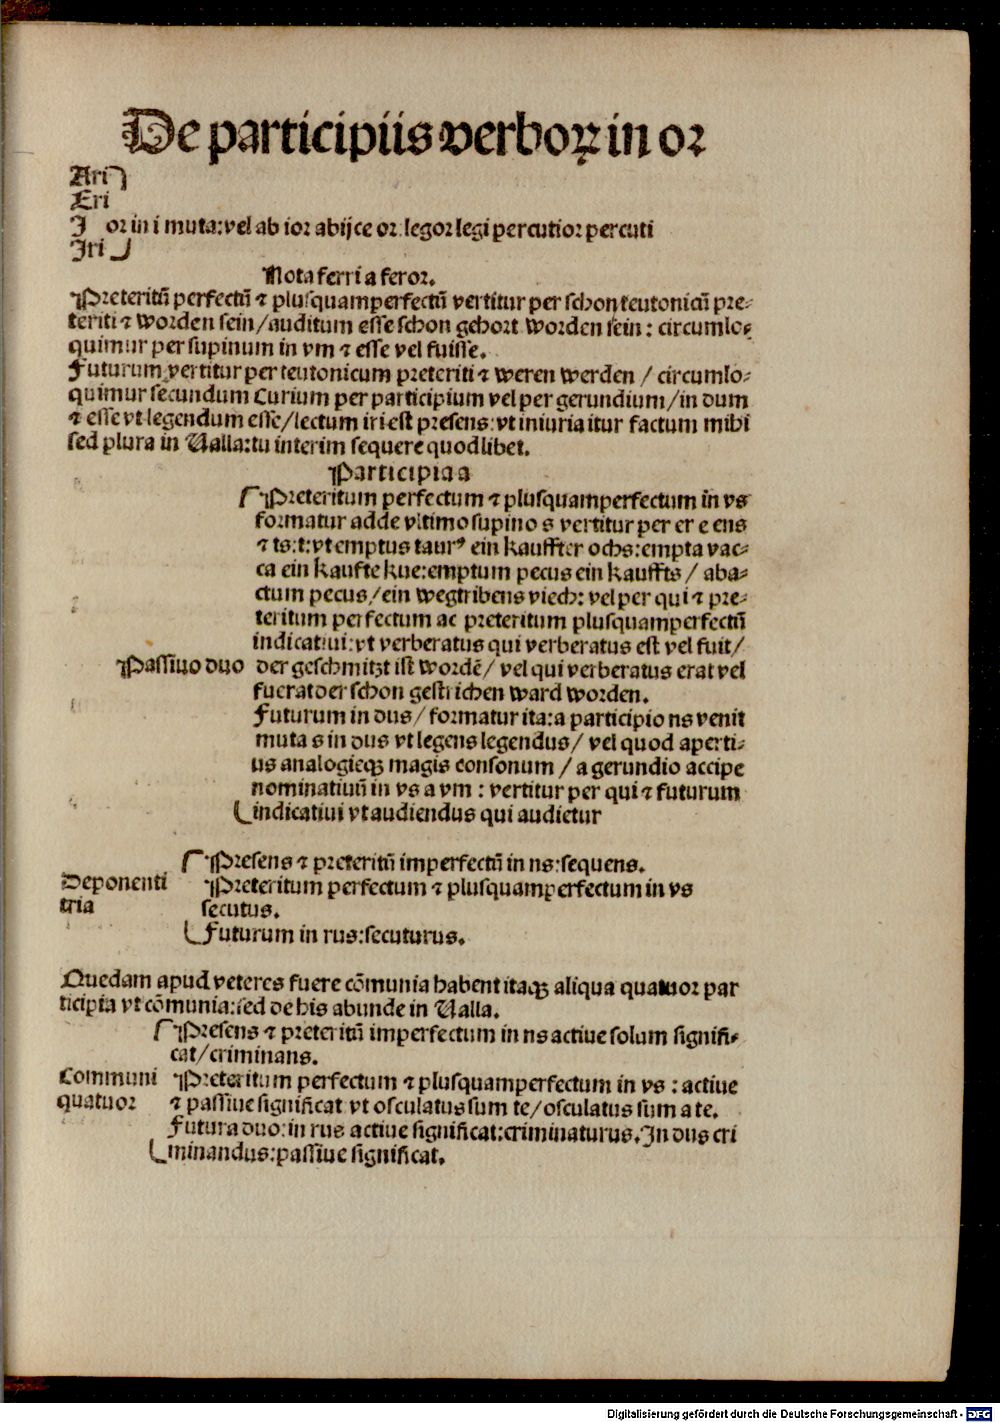 De participiis verboꝝ in or
Ari
Eri
I or in i muta: vel ab ior abijce or: legor legi percutior percuti
Iri
Nota ferri a feror.
Preteritū perfectū ⁊ plusquamperfectū vertitur per schon teutonicū pre⸗
teriti ⁊ worden sein/auditum esse schon gehort worden sein: circumlo⸗
quimur per supinum in vm ⁊ esse vel fuisse.
Futurum vertitur per teutonicum preteriti ⁊ weren werden / circumlo⸗
quimur secundum Curium per participium vel per gerundium/in dum
⁊ esse vt legendum esse/lectum iri est presens: vt iniuria itur factum mihi
sed plura in Valla: tu interim sequere quodlibet.
Participia a
Preteritum perfectum ⁊ plusquamperfectum in vs
formatur adde vltimo supino s vertitur per er e ens
⁊ ts:t: vt emptus taurꝰ ein kauffter ochs: empta vac⸗
ca ein kaufte kue: emptum pecus ein kauffts / aba⸗
ctum pecus/ein wegtribens viech: vel per qui ⁊ pre⸗
teritum perfectum ac preteritum plusquamperfectū
indicatiui: vt verberatus qui verberatus est vel fuit/
Passiuo duo der geschmitzt ist wordē/ vel qui verberatus erat vel
fuerat der schon gestrichen ward worden.
Futurum in dus/ formatur ita: a participio ns venit
muta s in dus vt legens legendus/ vel quod aperti⸗
us analogieqꝫ magis consonum / a gerundio accipe
nominatiuū in vs a vm : vertitur per qui ⁊ futurum
indicatiui vt audiendus qui audietur
Presens ⁊ preteritū imperfectū in ns: sequens.
Deponenti Preteritum perfectum ⁊ plusquamperfectum in vs
tria secutus.
Futurum in rus: secuturus.
Quedam apud veteres fuere cōmunia habent itaqꝫ aliqua quatuor par
ticipia vt cōmunia: sed de his abunde in Valla.
Presens ⁊ preteritū imperfectum in ns actiue solum signifi⸗
cat/criminans.
Communi Preteritum perfectum ⁊ plusquamperfectum in vs : actiue
quatuor ⁊ passiue significat vt osculatus sum te/osculatus sum a te.
Futura duo: in rus actiue significat: criminaturus. In dus cri
minandus: passiue significat.
Digitalisierung gefördert durch die Deutsche Forschungsgemeinschaft - DFG